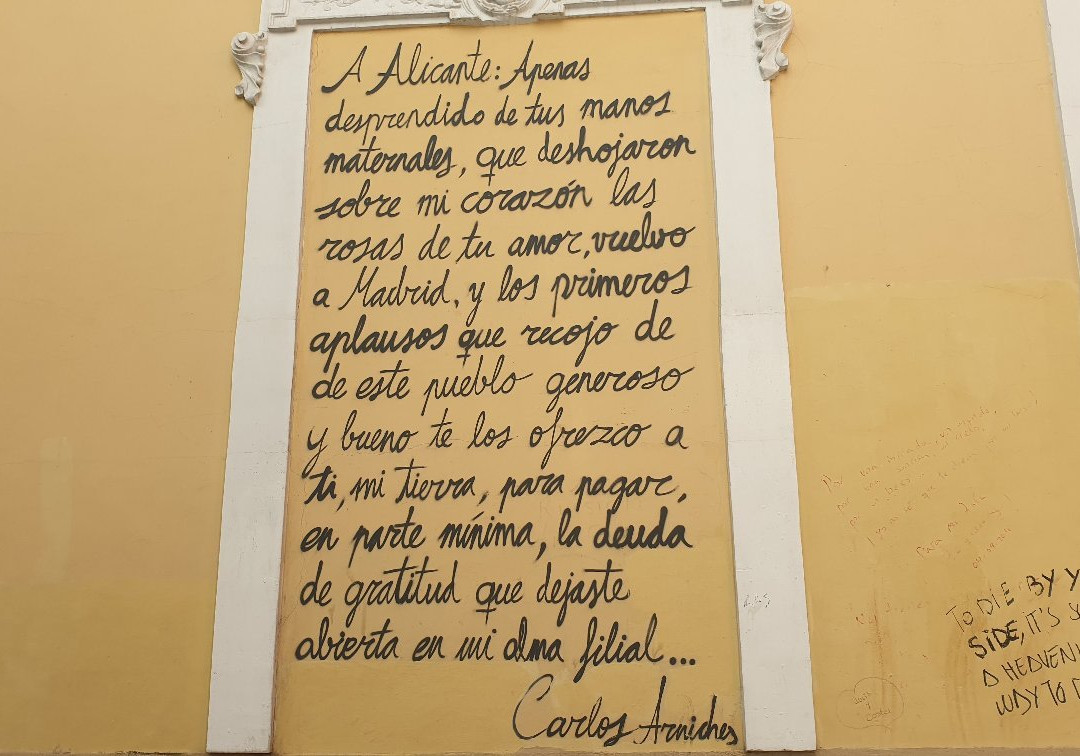 A Alicante: Apenas
desprendido de tus manos
maternales, que deshojaron
sobre mi corazón las
rosas de tu amor, vuelvo
a Madrid, y los primeros
aplausos que recojo de
de este pueblo generoso
y bueno te los ofrezco a
ti, mi tierra, para pagar,
en parte mínima, la deuda
de gratitud que dejaste
abierta en mi alma filial...
Carlos Arniches
TO DIE BY Y
SIDE, IT'S
A HEAVENL
WAY TO D